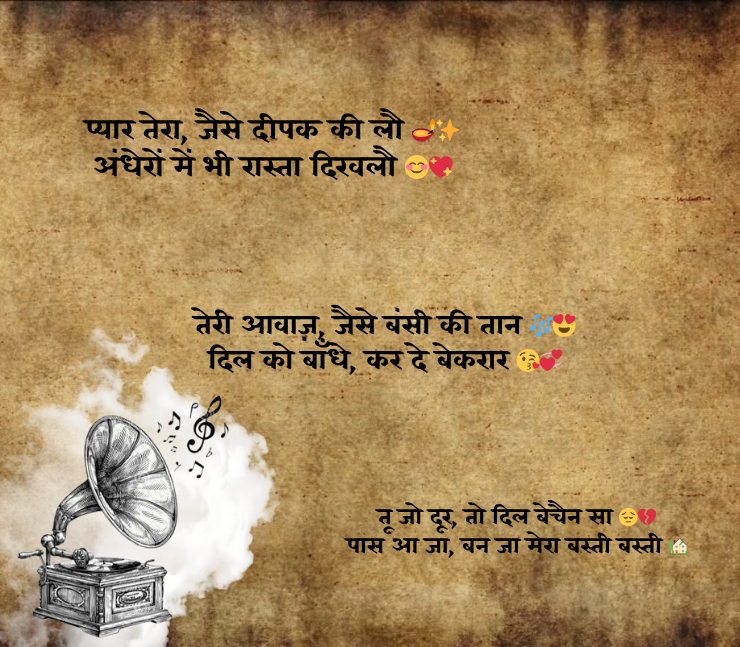 प्यार तेरा, जैसे दीपक की लौ 🪔✨
अंधेरों में भी रास्ता दिखलौ 😊💖
तेरी आवाज़, जैसे बंसी की तान 🎶😍
दिल को बाँधे, कर दे बेकरार 😘💞
तू जो दूर, तो दिल बेचैन सा 😔💔
पास आ जा, बन जा मेरा बस्ती बस्ती 🏡